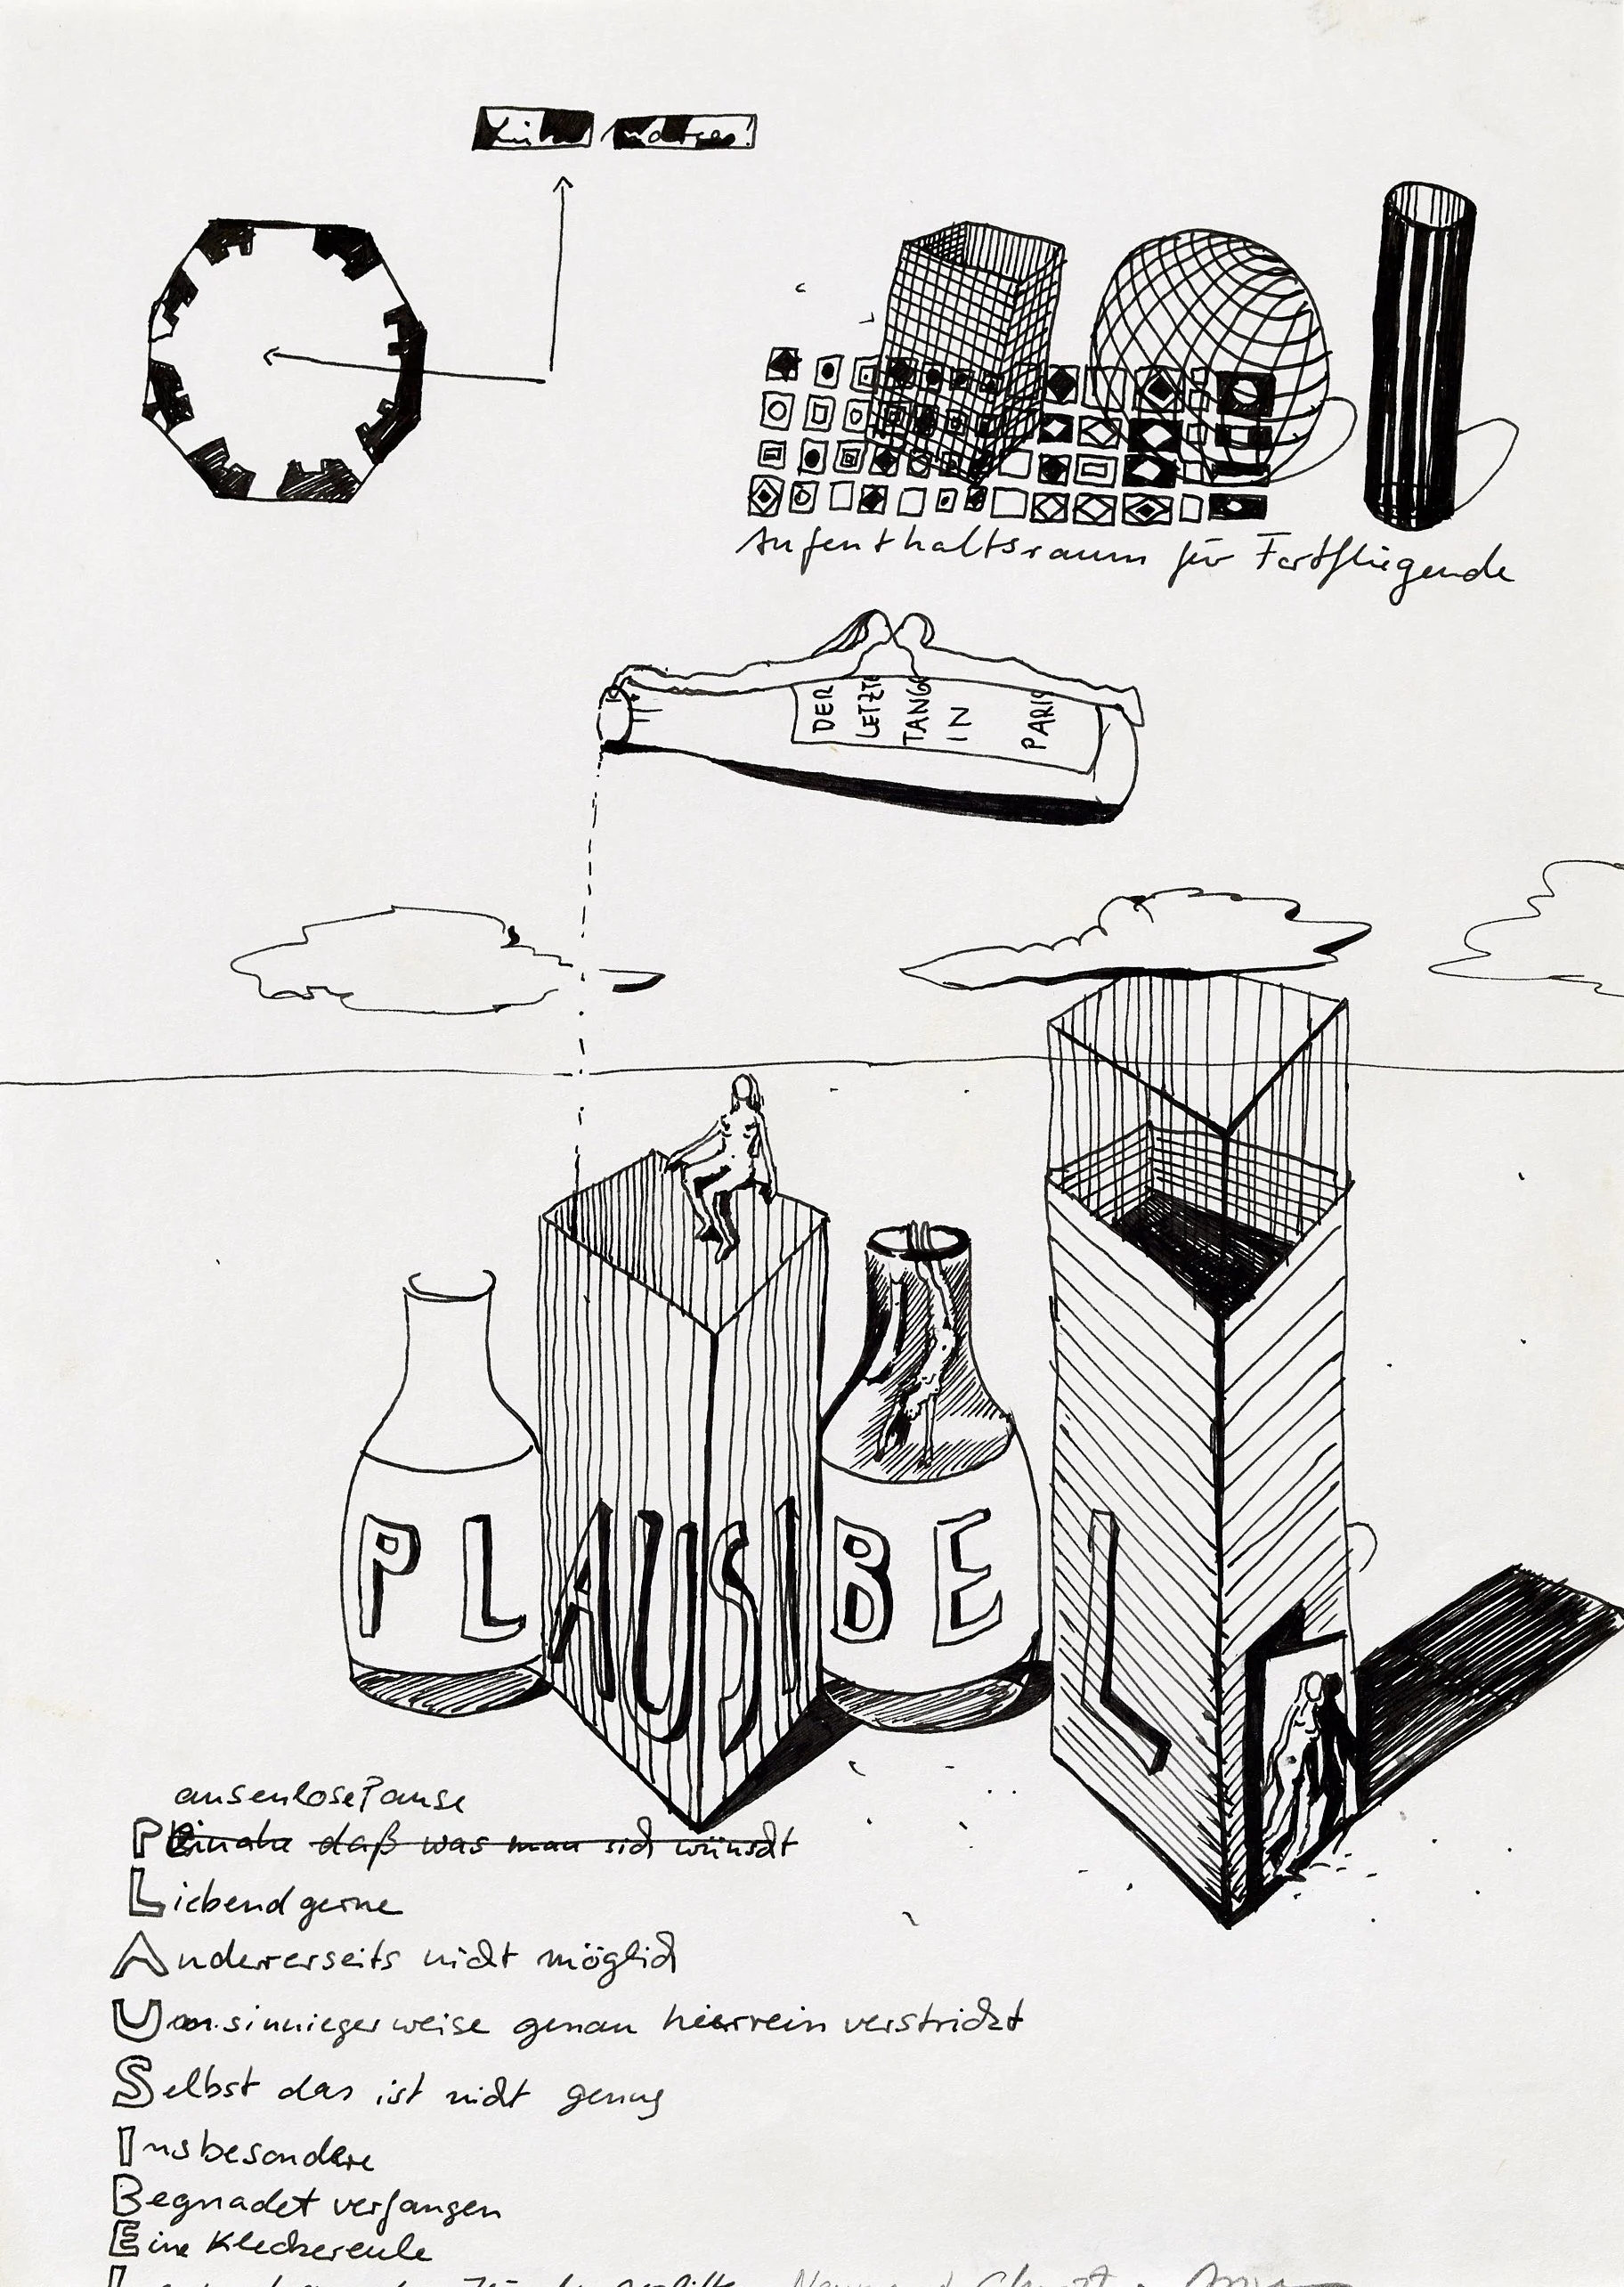 Aufenthaltsraum für Fortfliegende
DER
LETZTE
TANGO
IN
PARIS
PLAUSIBEL
ausenlosePause
P einahe daß was man sich wünscht
Liebend gerne
Andererseits nicht möglich
Unsinnigerweise genau hierrein verstrickt
Selbst das ist nicht genug
Insbesondere
Begnadet verfangen
Eine Kleckereule